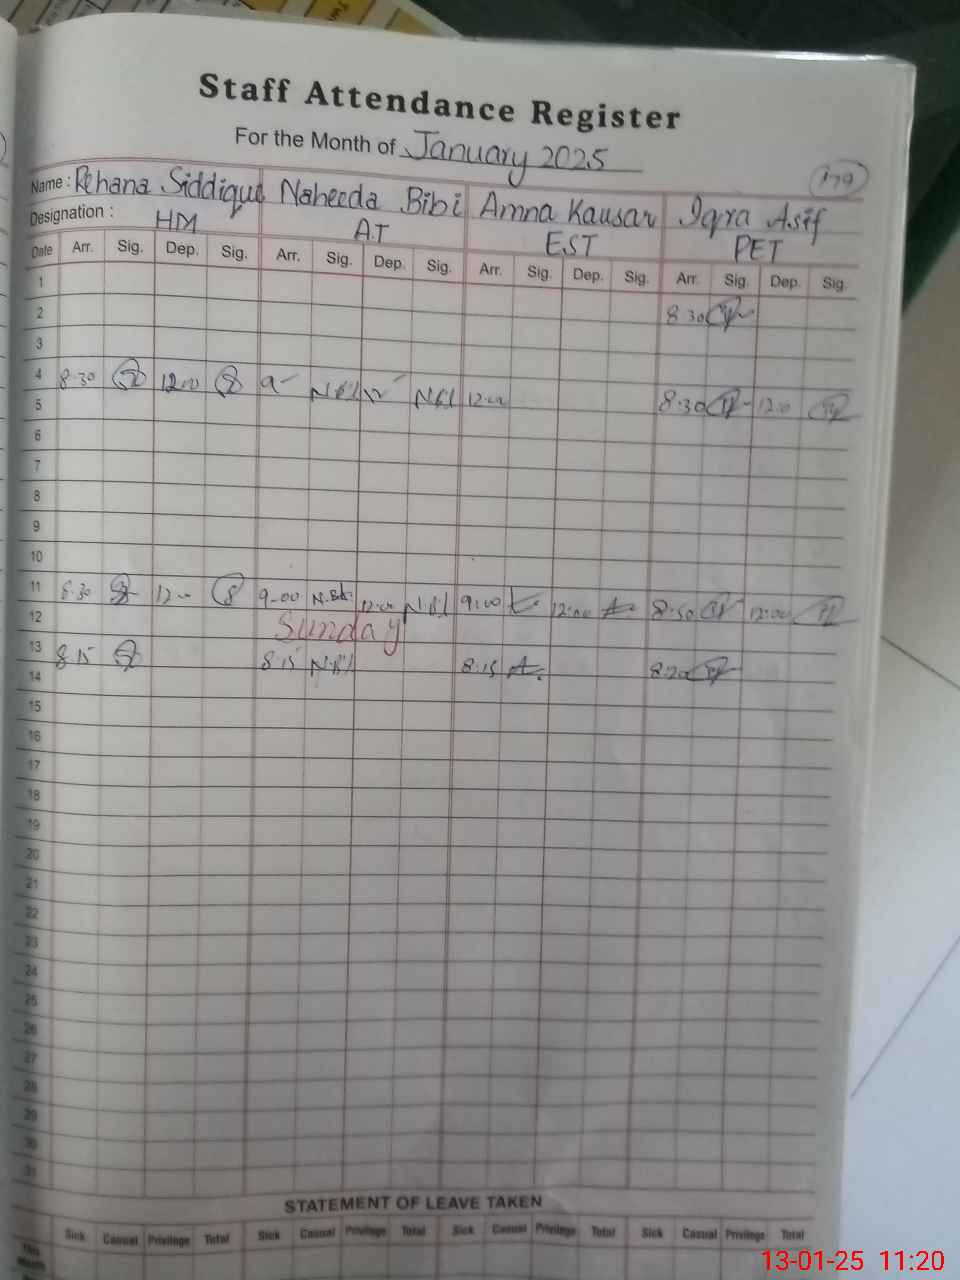 Staff Attendance Register
For the Month of January 2025
179
Name : Rehana Siddique Naheeda Bibi Amna Kausar Iqra Asif
Designation : HM A.T EST PET
Date Arr. Sig. Dep. Sig. Arr. Sig. Dep. Sig. Arr. Sig. Dep. Sig. Arr. Sig. Dep. Sig.
1
2 8.30
3
4 8.30 12.00 9 12 12.00 8.30 12.0
5
6
7
8
9
10
11 8.30 12 9.00 N.Bibi 12.00 9:00 12:00 8.30 12:00
12 Sunday
13 8.15 8.15 8.15 8.20
14
15
16
17
18
19
20
21
22
23
24
25
26
27
28
29
30
31
STATEMENT OF LEAVE TAKEN
Sick Casual Privilege Total Sick Casual Privilege Total Sick Casual Privilege Total Sick Casual Privilege Total
This Month
13-01-25 11:20